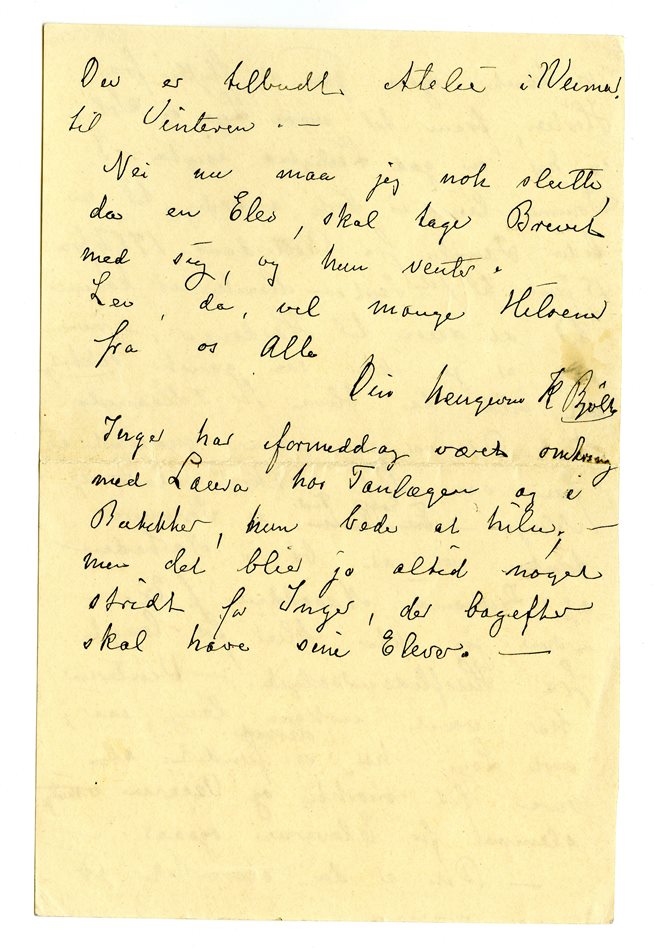 Der er tilbudt Atelié i Weimar
til Vinteren. —
Nei nu maa jeg nok slutte,
da en Elev, skal tage Brevet
med sig, og hun venter.
Lev, da, vel mange Hilsener
fra os Alle
Din hengivne K
Inger har iformiddag været omkring
med Laura hos Tandlægen og i
Butikker, hun beder at hilse, —
men det blir jo altid noget
stridt for Inger, der bagefter
skal have sine Elever. —